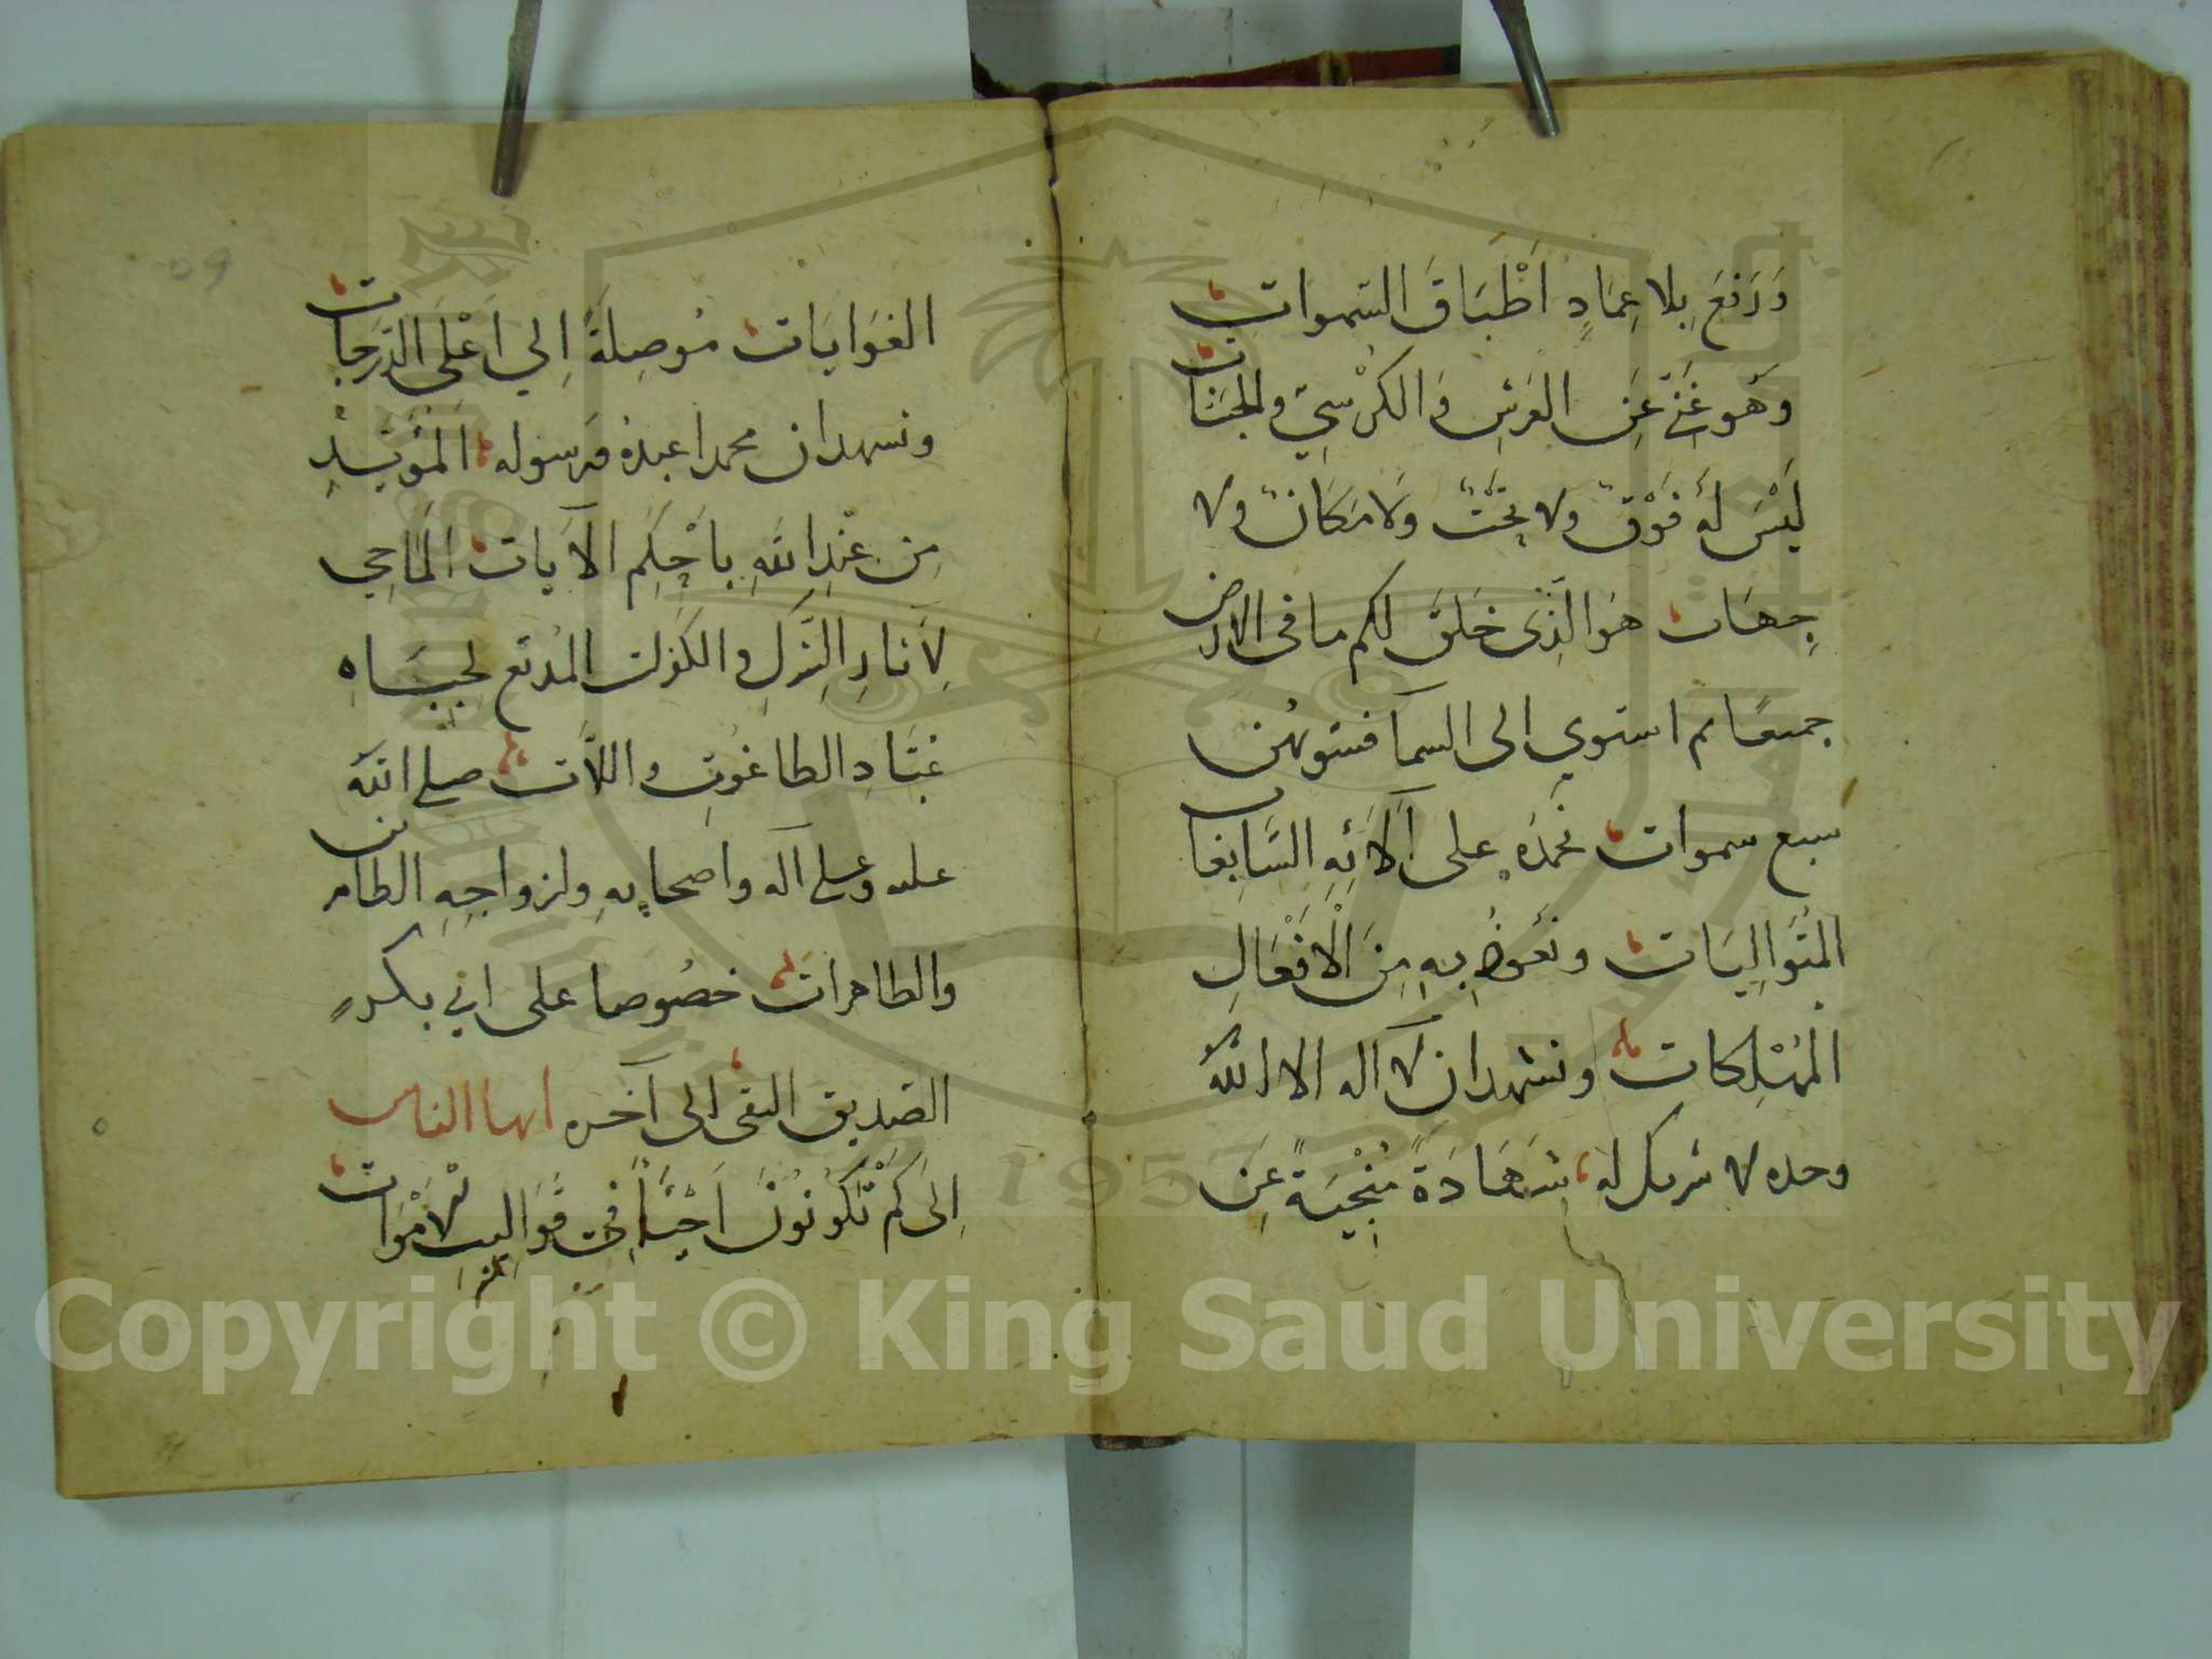 وَرَفَعَ بِلا عِمَادٍ اَطْبَاقَ السَّموات
وَهو غَنّي عَنِ العَرشِ وَالكُرْسِيّ والجَنّات
لَيْسَ لَهُ فَوْق ولا تحْتٌ وَلا مَكَانٌ ولا
جِهَات هوَ الَّذِى خَلَقَ لكم ما فى الارض
جميعًا ثم استوي الى السمآ فسوّيهُن
سبع سموات نحمدُه على آلَائِهِ السَّابِغات
المُتَوَالِيَات ونَعُوذُ بِهِ مِنَ الْافْعَالِ
المُهْلِكات ونشهد ان لا اله الا الله
وحده لا شريك له شَهَادَةً مُنْجِيَةً عَنِ
الغَوَايَات مُوصِلَةً اِلي اَعْلَى الدَّرَجات
ونشهد ان محمدا عبدهُ ورسوله المُؤَيَّدِ
مِن عِنْدِ اللَّهِ باَحْكَمِ الآيات المَاحِي
لِآثارِ الشِّركِ و الكفر المُدقع لجبَاهِ
عُبَّادِ الطاغُوتِ واللَّات صلى الله
عليه وعلى آله واصحابِهِ وازواجِهِ الطاهرات
والطاهرات خصُوصا على ابي بكر
الصّديق التقى الى آخره ايها الناس
اِلَى كَمْ تَكُونُونَ اَحْيَاً فِي قَوَالِبِ الامْوَات
Copyright © King Saud University
1957